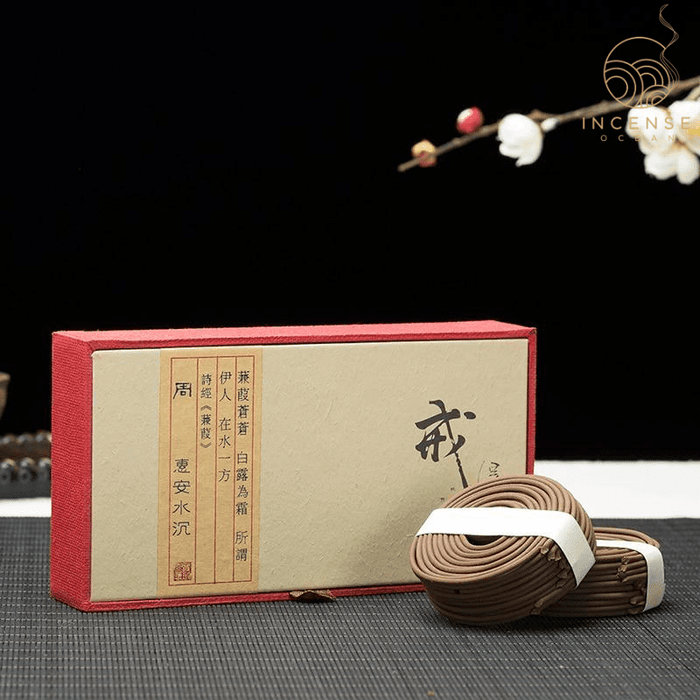 INCENSE
OCEAN
蒹葭蒼蒼 白露為霜 所謂
伊人 在水一方
詩經《蒹葭》
周 惠安水沉
戒